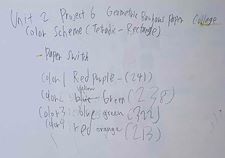 Unit 2 Project 6 Geometric Paper College
Color Scheme (Tetradic - Rectangle)
- Paper Swatch
Color 1 Red purple - (241)
yellow
Color 2 blue - Green (238)
Color 3: blue green (322)
Color 4: red orange (213)